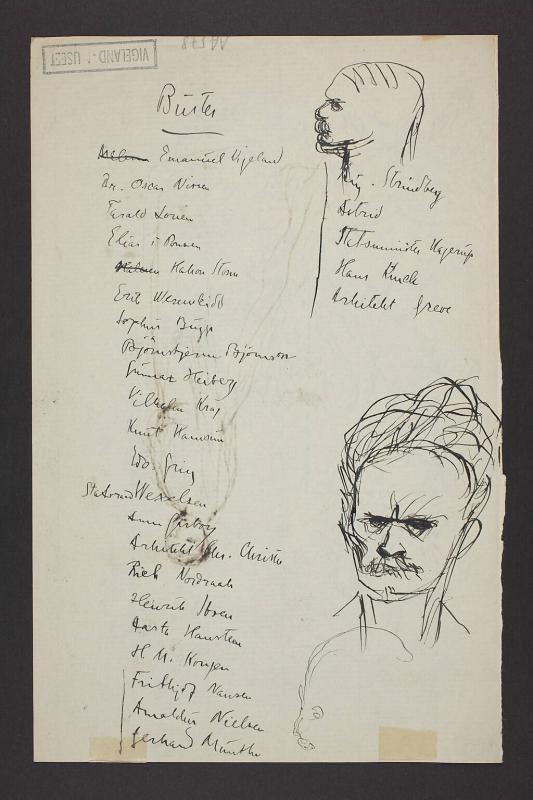 VIGELAND-MUSEET
Büster
Emanuel Vigeland
Dr. Oscar Nissen
Harald
Elias
Hakon Storm
Erik Werenskiold
Sophus Bugge
Björnstjerne Björnson
Gunnar Heiberg
Vilhelm Krag
Knut Hamsun
Edv. Grieg
Statsraad Wexelsen
Arne Garborg
Arkitekt Chr. Christie
Rich Nordraak
Heinrik Ibsen
Aasta Hansteen
H M. Kongen
Fridtjof Nansen
Amaldus Nielsen
Gerhard Munthe
Aug. Strindberg
Astrid
Statsminister Hagerup
Hans Kinck
Arkitekt Greve